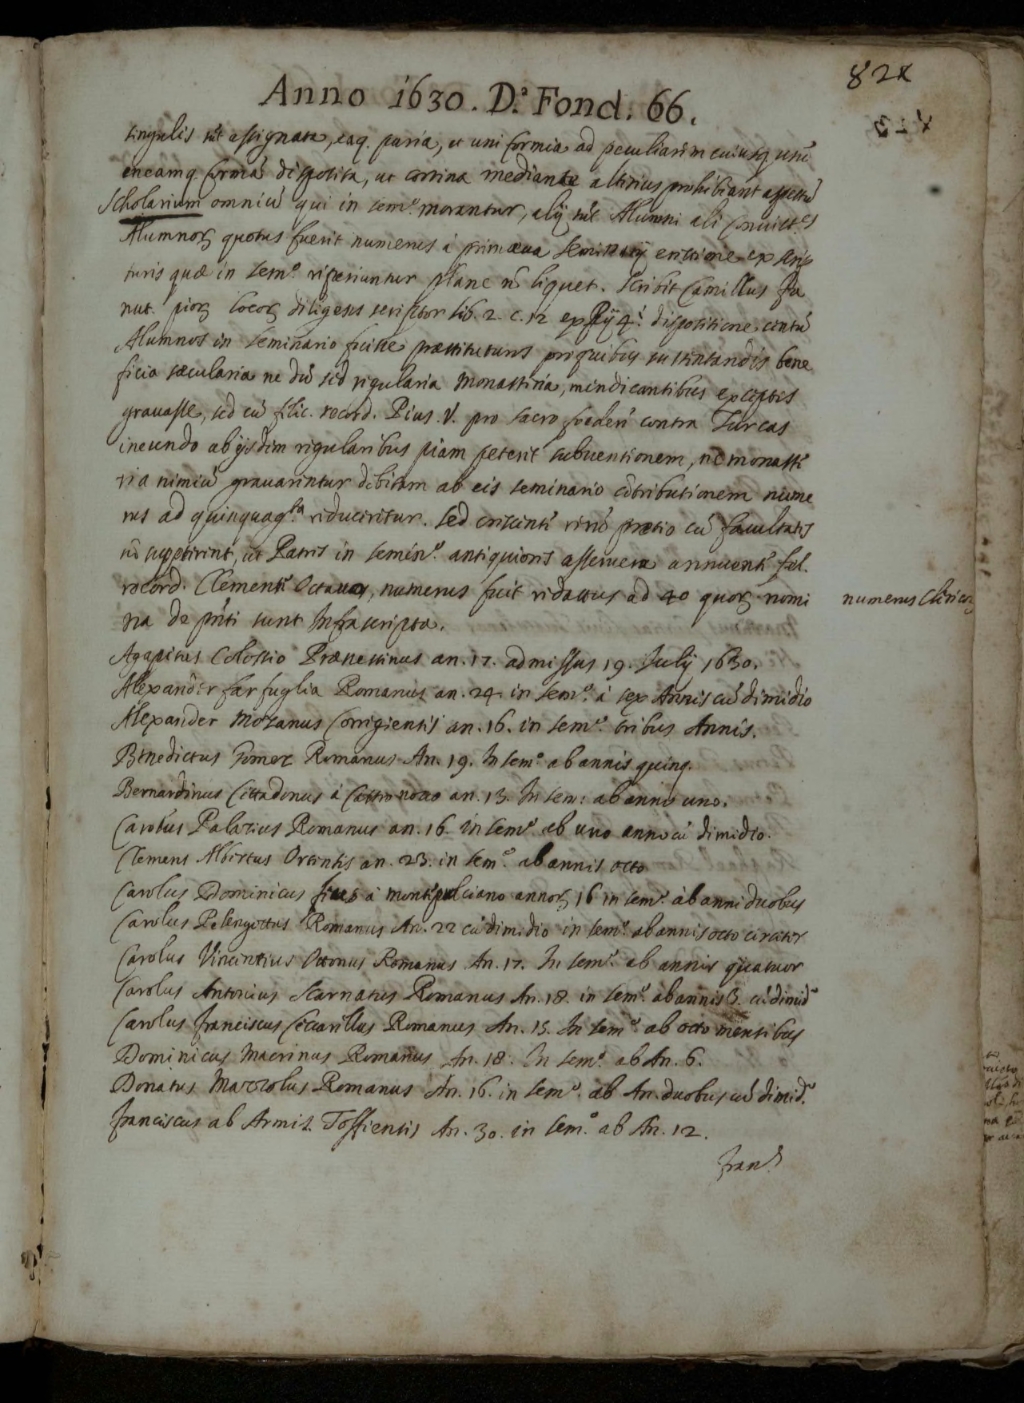 82x
Anno 1630. D.ᵃ Fond. 66.
singulis sūt assignata, eaq. paria, et uni formia ad peculiarem cuiusq usū
eneamq formā disposita, ut cortina mediante alterius prohibeant aspectū
Scholarium omniū qui in sem.º morantur, alij sūt Alumni alì Convict.es
Alumnoꝝ quotus fuerit numerus à primæua Seminarij erectione ex scrip
turis quæ in sem.º reperiuntur plane nō liquet. Scribit Camillus Fa
nut. pioꝝ locoꝝ diligens scriptor lib. 2. c. 12 ex Pij 4.ⁱ dispositione centū
Alumnos in seminario fuisse præstituturis pro quibus sustentandis bene
ficia sæcularia ne dū sed regularia monasteria, mendicantibus exceptis
grauasse, sed cū felic. record. Pius. V. pro sacro foedere contra Turcas
ineundo ab ijsdem regularibus piam peteret subuentionem, ne monaste
ria nimiū grauarentur debitam ab eis seminario cōtributionem nume
rus ad quinquag.ta reduceretur. Sed crescente rerū prætio cū facultates
nō suppeterent, ut Patres in semin.º antiquiores asseuera annuente fel.
record. Clemente Octauo, numerus fuit redactus ad 40 quoꝝ nomi
na de pñti sunt Infrascripta.
numerus Clericoꝝ
Agapitus Colossio Prænestinus an. 17. admissus, 19. Julij 1630.
Alexander farfuglia Romanus an. 24 in sem.º à sex Annis cū dimidio
Alexander Mozanus Corrigiensis an. 16. in sem.º tribus Annis.
Benedictus Pomer Romanus An. 19. In sem.º ab annis quinq.
Bernardinus Cittadonus à Castro nouo an. 13. In sem: ab anno uno.
Carolus Palatius Romanus an. 16 in sem.º ab uno anno cū dimidio.
Clemens Albertus Ortensis an. 23. in sem.º ab annis octo
Carolus Dominicus à monte pulciano annoꝝ 16 in sem.º ab anni duobus
Carolus Pelengottus Romanus An. 22 cū dimidio in sem.º ab annis octo circiter
Carolus Vincentius Ottonus Romanus An. 17. In sem.º ab annis quatuor
Carolus Antonius Scarnatus Romanus An. 18. in sem.º ab annis 3. cū dimid.º
Carolus franciscus Ceccarillus Romanus An. 15. In sem.º ab octo mensibus
Dominicus Macrinus Romanus An. 18. In sem.º ab An. 6.
Donatus Marzolus Romanus An. 16. in sem.º ab An. duobus cū dimid.º
franciscus ab Armis. Tossiensis An. 30. in sem.º ab An. 12.
Fran.s